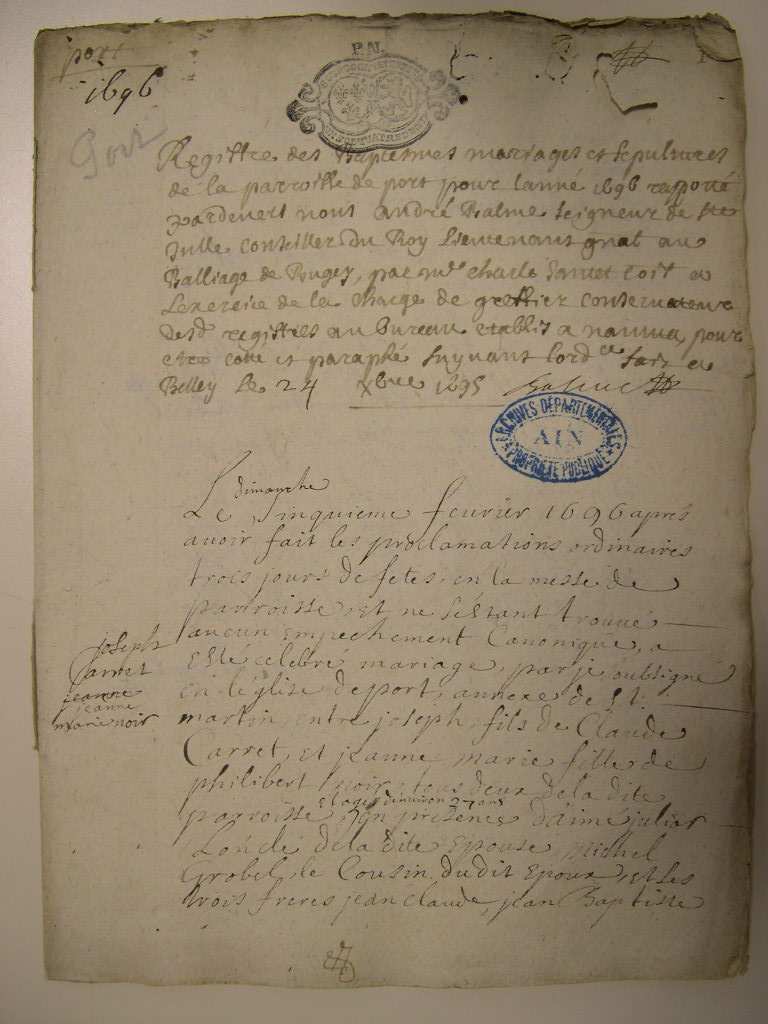 port
1696
P.N.
Port
Registre des Baptesmes mariages et sepultures
de la parroisse de port pour lanné 1696 rapporté
pardevert nous andré Balme seigneur de ste
Julle conseiller du Roy Lieutenant gnal au
Balliage de Bugey, par mre charle
Lexercise de la charge de greffier conservateur
desd registres au bureau etablis a nantua pour
etre cotté et paraphé suyvant lord ce fait a
Belley le 24 xbre 1695 Balme
ARCHIVES DÉPARTEMENTALES
AIN
PROPRIÉTÉ PUBLIQUE
dimanche
Le sinquieme fevrier 1696 apres
avoir fait les proclamations ordinaires
trois jours de fetes, en la messe de
parroisse, et ne s'estant trouvé
aucun empechement Canonique, a
esté celebré mariage, par je soubsigné
en leglise de port, annexe de St.
martin, entre joseph, fils de Claude
Carret, et jeanne marie fille de
philibert noir, tous deux de la dite
et agés d'environ 27 ans
parroisse, en presence d'aimé julliar
Loncle de la dite Epouse, michel
Grobel le Cousin dudit Epoux, et les
trois freres jean claude, jean Baptiste
joseph
Carret
jeanne
jeanne
marie noir